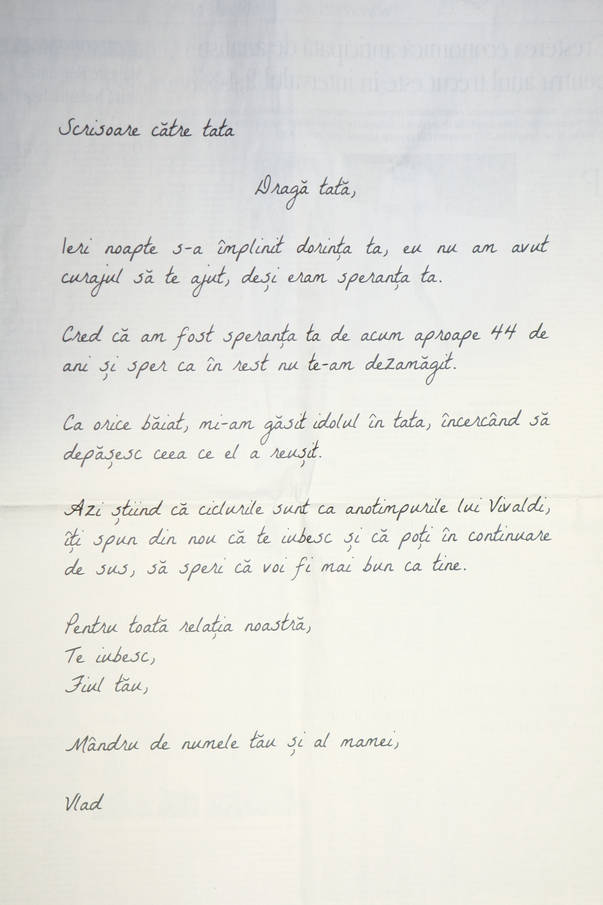 Scrisoare către tata
Dragă tată,
Ieri noapte s-a împlinit dorința ta, eu nu am avut
curajul să te ajut, deși eram speranța ta.
Cred că am fost speranța ta de acum aproape 44 de
ani și sper ca în rest nu te-am dezamăgit.
Ca orice băiat, mi-am găsit idolul în tata, încercând să
depășesc ceea ce el a reușit.
Azi știind că ciclurile sunt ca anotimpurile lui Vivaldi,
îți spun din nou că te iubesc și că poți în continuare
de sus, să speri că voi fi mai bun ca tine.
Pentru toată relația noastră,
Te iubesc,
Fiul tău,
Mândru de numele tău și al mamei,
Vlad